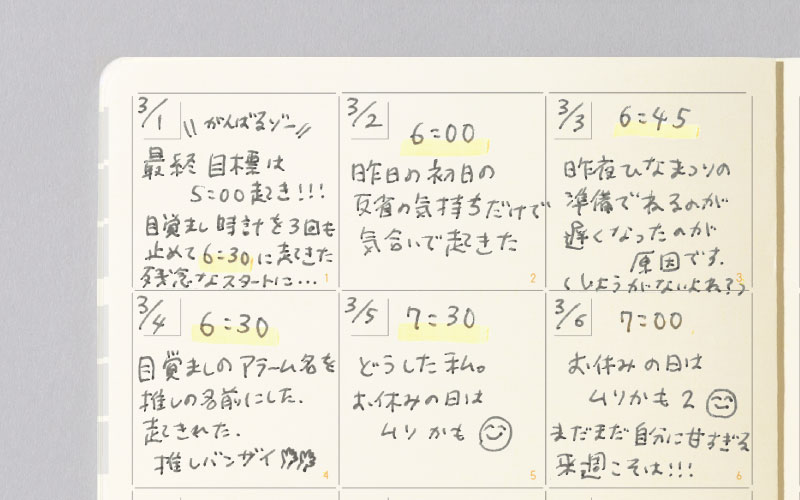 3/1
\\がんばるゾー//
最終目標は
5:00起き!!!
目覚まし時計を3回も
止めて6:30に起きた
残念なスタートに…
1
3/2
6:00
昨日の初日の
反省の気持ちだけで
気合いで起きた
2
3/3
6:45
昨夜ひなまつりの
準備でねるのが
遅くなったのが
原因です.
(しょうがないよね?)
3
3/4
6:30
目覚ましのアラーム名を
推しの名前にした.
起きれた.
推しバンザイ
4
3/5
7:30
どうした私。
お休みの日は
ムリかも
5
3/6
7:00
お休みの日は
ムリかも2
まだまだ自分に甘すぎる
来週こそは!!!
6